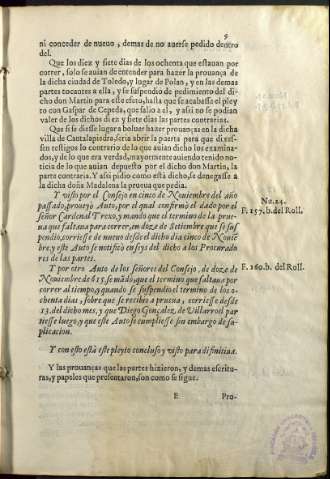 9
ni conceder de nueuo, demas de no auerse pedido dentro
del.
Que los diez y siete dias de los ochenta que estauan por
correr, solo se auian de entender para hazer la prouança de
la dicha ciudad de Toledo, y lugar de Polan, y en las demas
partes tocantes a ella, y se suspendio de pedimiento del di-
cho don Martin para este efeto, hasta que se acabasse el pley
to con Gaspar de Cepeda, que salio a el, y assi no se podian
valer de los dichos diez y siete dias las partes contrarias.
Que si se diesse lugar a boluer hazer prouanças en la dicha
villa de Cantalapiedra, seria abrir la puerta para que dixes-
sen testigos lo contrario de lo que auian dicho los examina-
dos, y de lo que era verdad, mayormente auiendo tenido no-
ticia de lo que auian depuesto por el dicho don Martin, la
parte contraria. Y assi pidio como está dicho, se denegasse a
la dicha doña Madalena la prueua que pedia.
Y visto por el Consejo en cinco de Nouiembre del año
passado, proueyò Auto, por el qual confirmò el dado por el
señor Cardenal Trexo, y mandò que el termino de la prue-
ua que faltaua para correr, en doze de Setiembre que se sus-
pendio, corriesse de nueuo desde el dicho dia cinco de Nouie
bre, y este Auto se notificò en seys del dicho a los Procurado
res de las partes.
No. 24.
F. 157. b. del Roll.
Y por otro Auto de los señores del Consejo, de doze de
Nouiembre de 615. se mãdò, que el termino que faltaua por
correr al tiempo, y quando se suspendio el termino de los o-
chenta dias, sobre que se recibio a prueua, corriesse desde
13. del dicho mes, y que Diego Gonçalez, de Villarroel par
tiesse luego, y que este Auto se cumpliesse sin embargo de su-
plicacion.
F. 160. b. del Roll.
Y con esto està este pleyto concluso y visto para difinitiua.
Y las prouanças que las partes hizieron, y demas escritu-
ras, y papeles que presentaron, son como se sigue.
E
Pro-